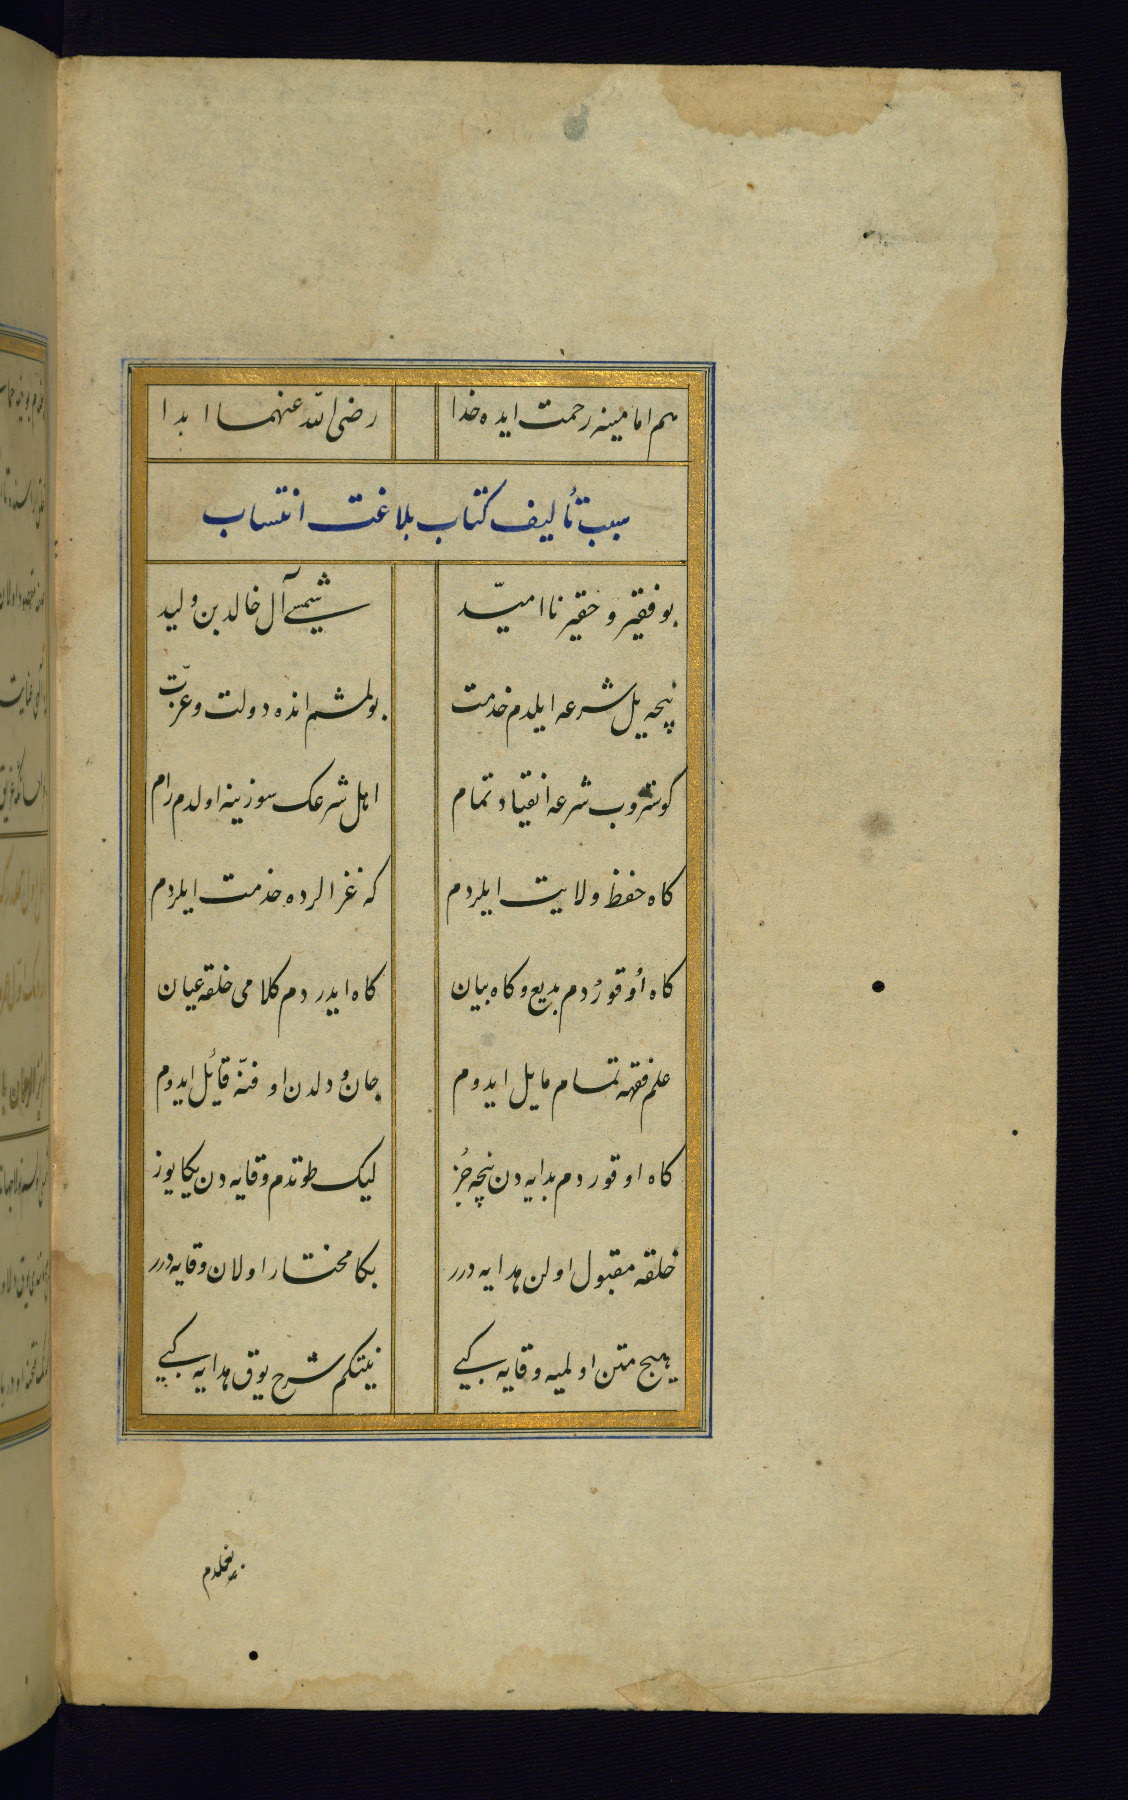 هم امامینه رحمت ایده خدا رضی الله عنهما ابدا
سبب تألیف کتاب بلاغت انتساب
بو فقیر و حقیر ناامیّد شمسی آل خالد بن ولید
نیچه ییل شرعه ایلدم خدمت بولمشم انده دولت و عزّت
کوستروب شرعه انقیاد تمام اهل شرعک سوزینه اولدم رام
کاه حفظ ولایت ایلردم که غزالرده خدمت ایلردم
کاه أوقوردم بدیع و کاه بیان کاه ایدردم کلامی خلقه عیان
علم فقهه تمام مایل ایدوم جان و دلدن او فنّه قائل ایدوم
کاه اوقوردم بدایه دن نیچه جُز لیک طوتدم وقایه دن یکا یوز
خلقه مقبول اولن هدایه درر بکا مختار اولان وقایه درر
هیچ متن اولمیه وقایه کیبی نیتکم شرح یوق هدایه کیبی